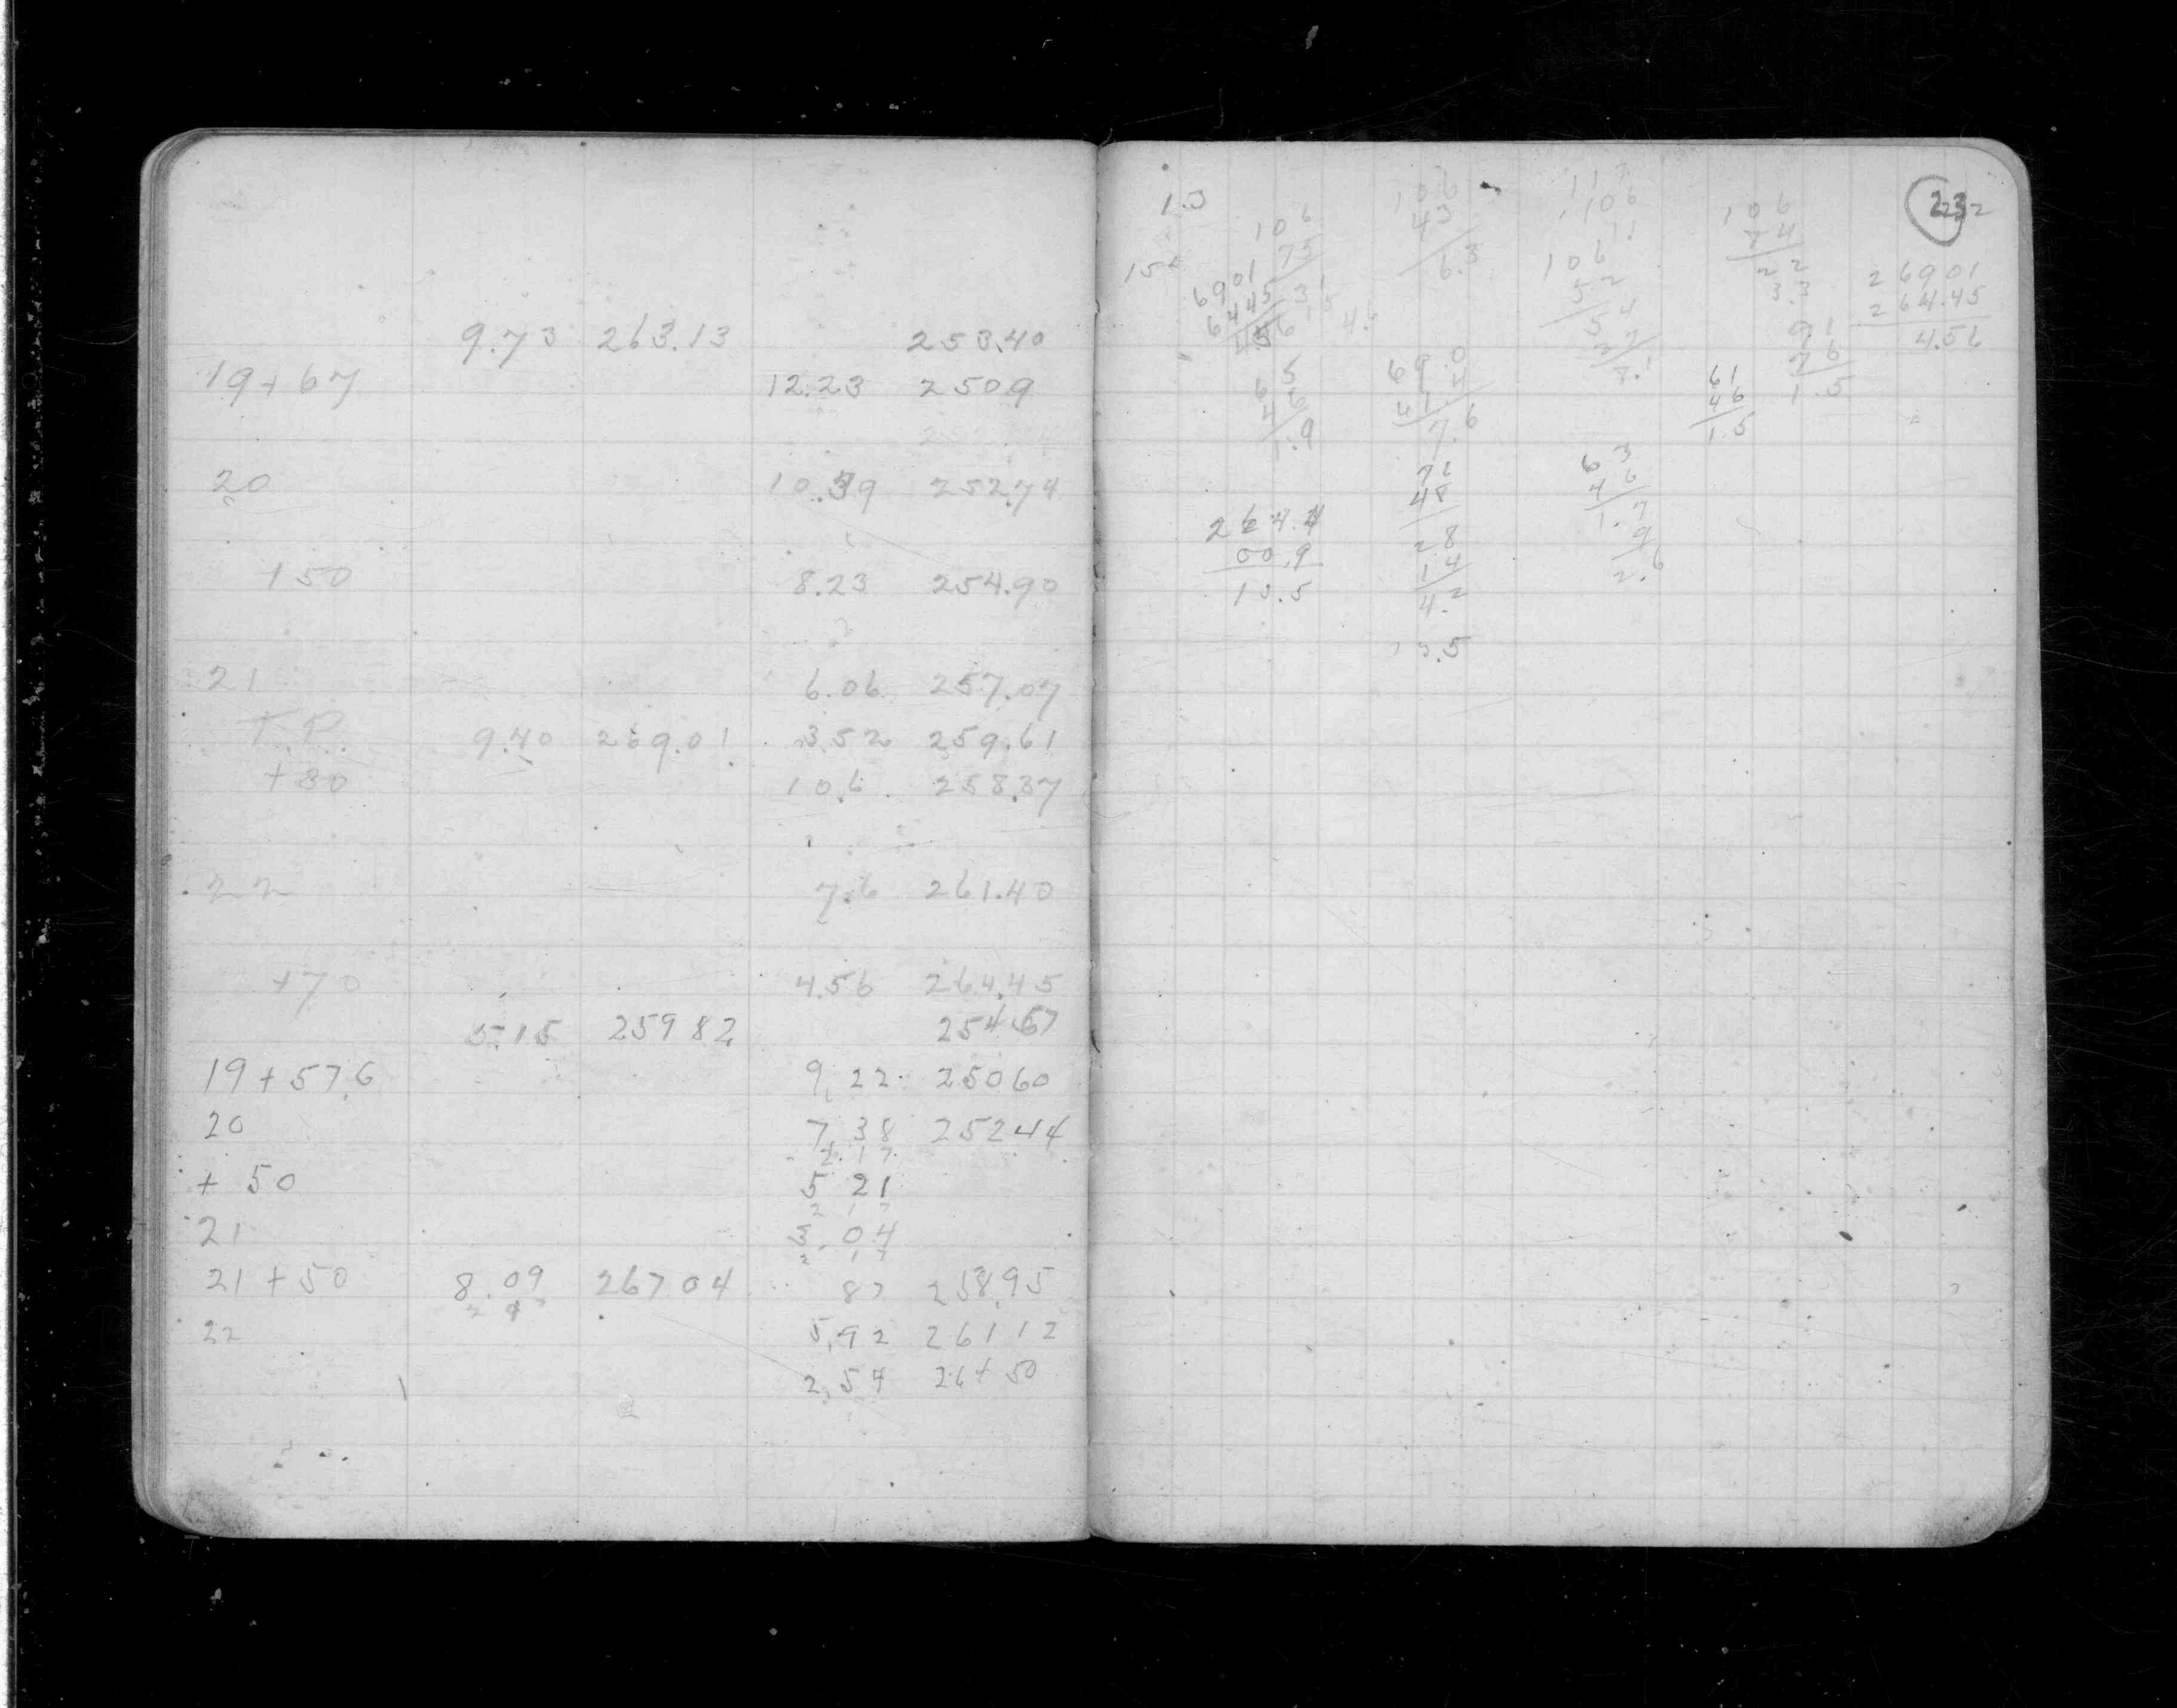 9.73 263.13 253.40
19+67 12.23 2509
20 10.39 252.74
+50 8.23 254.90
21 6.06 257.07
T.P. 9.40 269.01 3.52 259.61
+80 10.6 258.37
22 7.6 261.40
+70 4.56 264.45
5.15 259 82 254.67
19+57.6 9 22 250 60
20 7 38 252 44
2.17
+ 50 5 21
2 17
21 3.04
2 17
21+50 8.09 267 04 87 258.95
22 5.92 261 12
2.54 264 50
23
106
75
31
6901
6445
456
106
43
6.3
117
106
11
106
52
54
27
8.1
106
74
22
3.3
26901
264.45
4.56
91
76
1.5
65
46
1.9
69.0
61.4
7.6
61
46
1.5
63
46
1.7
9
2.6
264.4
00.9
13.5
28
14
4.2